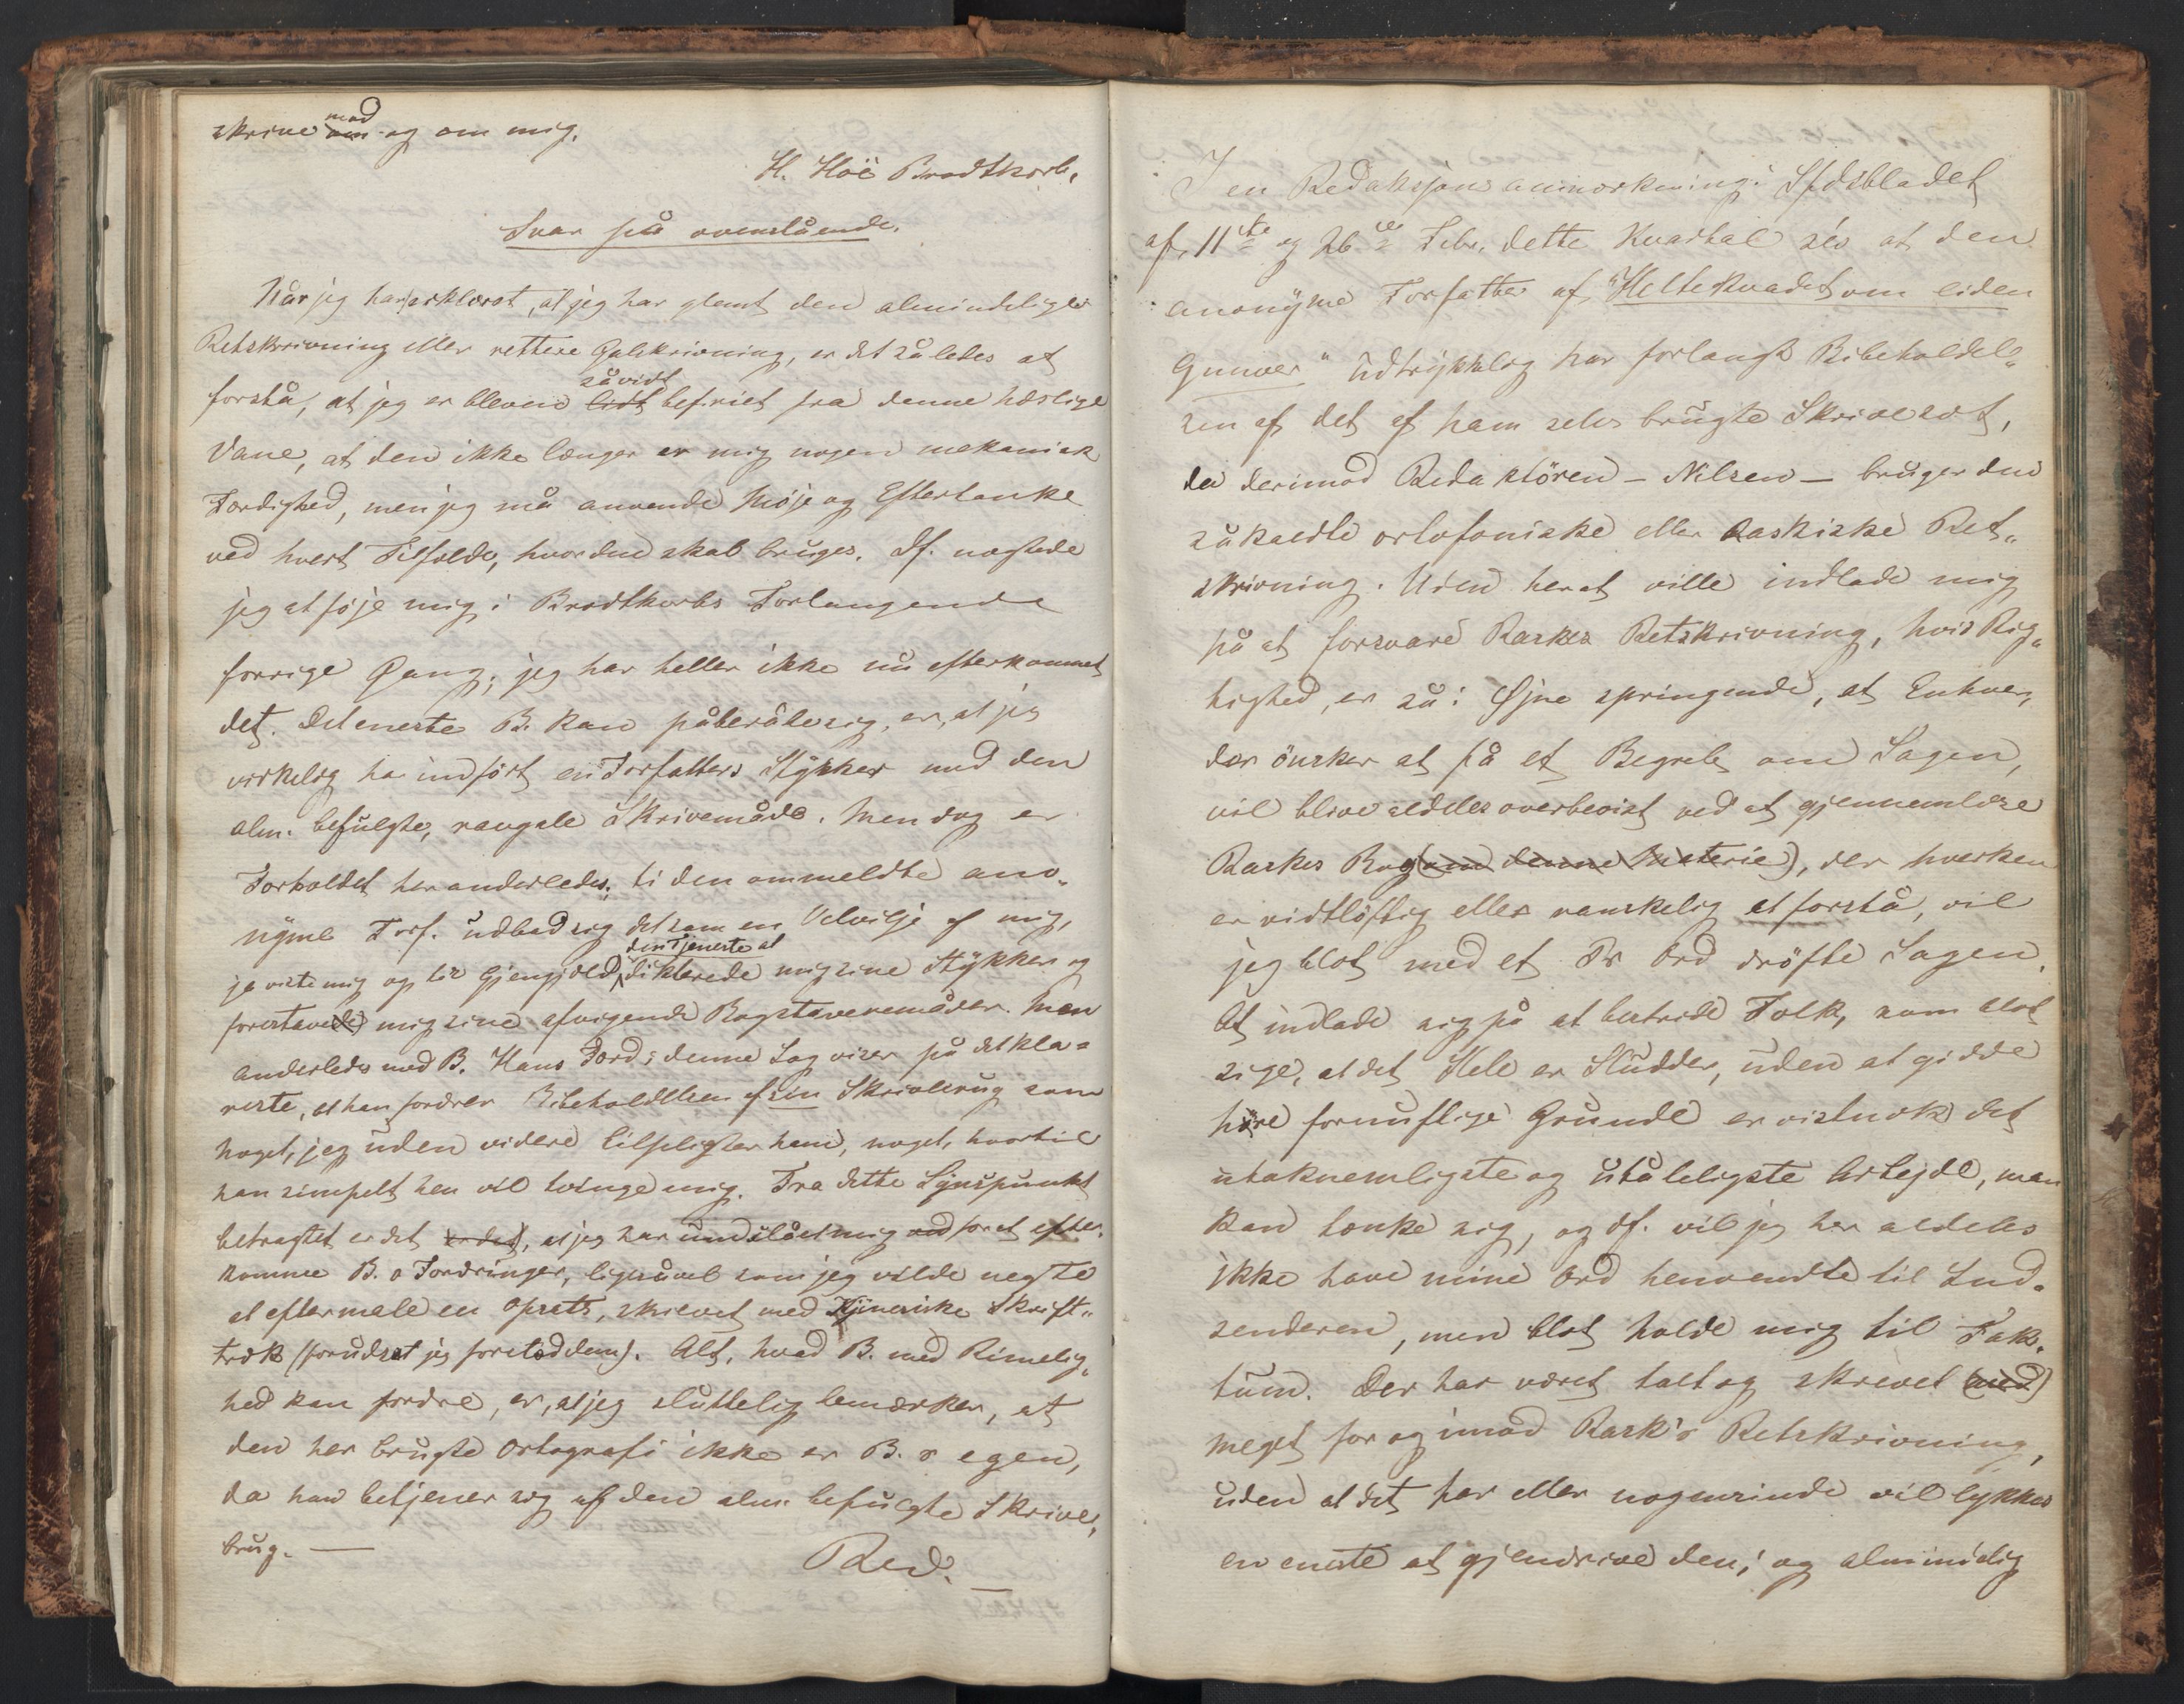 skrive mod om og om mig.
H. Höe Brodtkorb.
Svar på ovenstående.
Når jeg har erklæret, at jeg har glemt den almindelige
Retskrivning eller rettere Galskrivning, er det således at
forstå, at jeg er bleven såvidt lidt befriet fra denne hæslige
Vane, at den ikke længer er mig nogen mekanisk
Færdighed, men jeg må anvende Möje og Eftertanke
ved hvert Tilfælde, hvor den skal bruges. Df. nægtede
jeg at föje mig i Brodtkorbs Forlangende
forrige Gang; jeg har heller ikke nu efterkommet
det. Det eneste B. kan påberåbe sig, er, at jeg
virkelig har indfört en Forfatters Stykker med den
alm. befulgte, ravgale Skrivemåde. Men dog er
Forholdet her anderledes; ti den ommeldte ano-
nyme Forf. udbad sig det som en Velvilje af mig,
ja viste mig og til Gjengjæld den Tjeneste at dikterede mig sine Stykker og
forestavede mig sine afvigende Bogstaveremåder. Men
anderledes med B. Hans Færd i denne Sag viser på det kla=
reste, at han fordrer Bibeholdelsen af sin Skrivebrug som
noget, jeg uden videre tilpligter ham, noget, hvortil
han simpelt hen vil tvinge mig. Fra dette Synspunkt
betragtet er det er det, at jeg har undslået mig ved for at efter-
komme B.s Fordringer, ligesåvel som jeg vilde negte
at eftermale en Opsats, skrevet med Kjinesiske Skrift-
træk (forudsat jeg forstod dem). Alt, hvad B. med Rimelig-
hed kan fordre, er, at jeg sluttelig bemærker, at
den her brugte Ortografi ikke er B.s egen,
da han betjener sig af den alm. befulgte Skrive-
brug. —
Red.
I en Redaksjonsanmærkning i Sfdsbladet
af 11te og 26de Febr. dette Kvartal sés at den
anonyme Forfatter af "Heltekvadet om liden
Gunver" udtrykkelig har forlangt Bibeholdel-
sen af det af ham selv brugte Skrivesæt,
da derimod Redaktören — Nilsen — bruger den
såkaldte ortofoniske eller Raskiske Ret-
skrivning. Uden her at ville indlade mig
på at forsvare Raskes Retskrivning, hvis Rig-
tighed, er så i Øjne springende, at Enhver,
der önsker at få et Begreb om Sagen,
vil blive aldeles overbevist ved at gjennemlæse
Raskes Bog (om denne Materie), der hverken
er vidtlöftig eller vanskelig at forstå, vil
jeg blot med et Par Ord dröfte Sagen.
At indlade sig på at bestride Folk, som blot
sige, at det Hele er Sludder, uden at gidde
höre fornuftige Grunde er vistnok det
utaknemligste og utåleligste Arbejde, man
kan tænke sig, og df. vil jeg her aldeles
ikke have mine Ord henvendte til Ind-
senderen, men blot holde mig til Fak-
tum. Der har været talt og skrevet (med)
meget for og imod Rask's Retskrivning,
uden at det har eller nogensinde vil lykkes
en eneste at gjendrive den; og almindelig